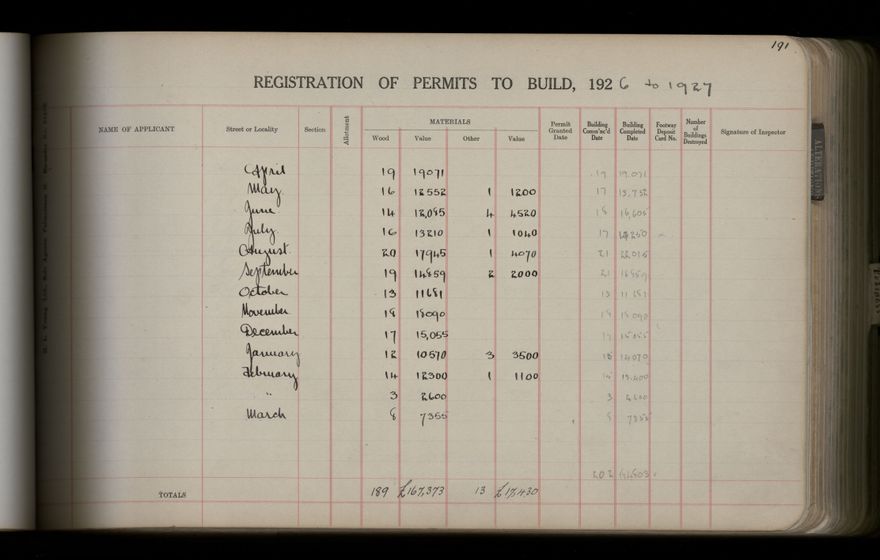 191
REGISTRATION OF PERMITS TO BUILD, 1926 to 1927
NAME OF APPLICANT Street or Locality Section Allotment MATERIALS Permit Granted Date Building Comm'nc'd Date Building Completed Date Footway Deposit Card No. Number of Buildings Destroyed Signature of Inspector
Wood Value Other Value
April 19 19071 19 19,071
May 16 12552 1 1200 17 13,752
June 14 12,085 4 4520 18 16,605
July 16 13210 1 1040 17 14250
August 20 17945 1 4070 21 22015
September 19 14859 2 2000 21 16859
October 13 11681 13 11681
November 18 18090 18 18090
December 17 15,055 17 15055
January 12 10570 3 3500 15 14070
February 14 12300 1 1100 15 13,400
" 3 2600 3 2600
March 8 7355 8 7355
202 184803
TOTALS 189 £167,373 13 £17,430
ALTERATION